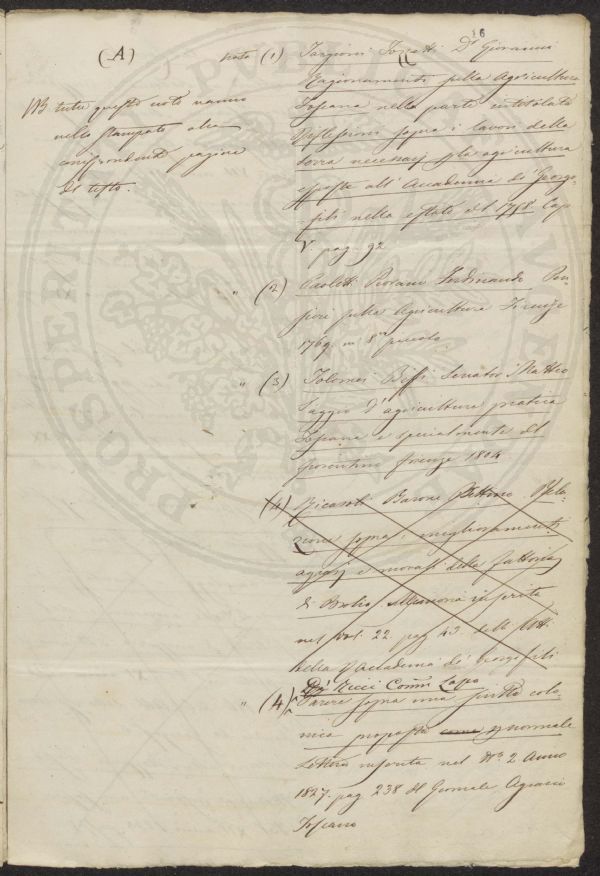 16
(A)
NB tutte queste note vanno
nella stampato alla
corrispondente pagina
di testo.
nota (1) Targioni Tozzetti Dr Giovanni
Ragionamenti sulla Agricultura
Toscana nella parte intitolata
Riflessioni sopra i lavori della
terra necessarj pla agricultura
esposte all'Accademia de' Georgo-
fili nella estate del 1758. Cap
V. pag. 92
" (2) Paoletti Piovano Ferdinando Pen-
sieri sulla Agricultura Firenze
1769 in 8vo piccolo
" (3) Tolomei Biffi Senator Matteo
Saggio d'agricultura pratica
Toscana e specialmente del
Fiorentino Firenze 1804
(4) Ricasoli Barone Bettino Rela-
zione sopra i miglioramenti
agrarj e morali della fattoria
di Brolio. Memoria inserita
nel vol. 22. pag 43. delli Atti
della Accademia de' Georgofili
De' Ricci Comm Lapo
" (4) Parere sopra una scritta colo-
nica proposta come normale
Lettera inserita nel No. 2 Anno
1827. pag 238 del Giornale Agrario
Toscano
PROSPERITATI PVBLICAE AVGENDAE